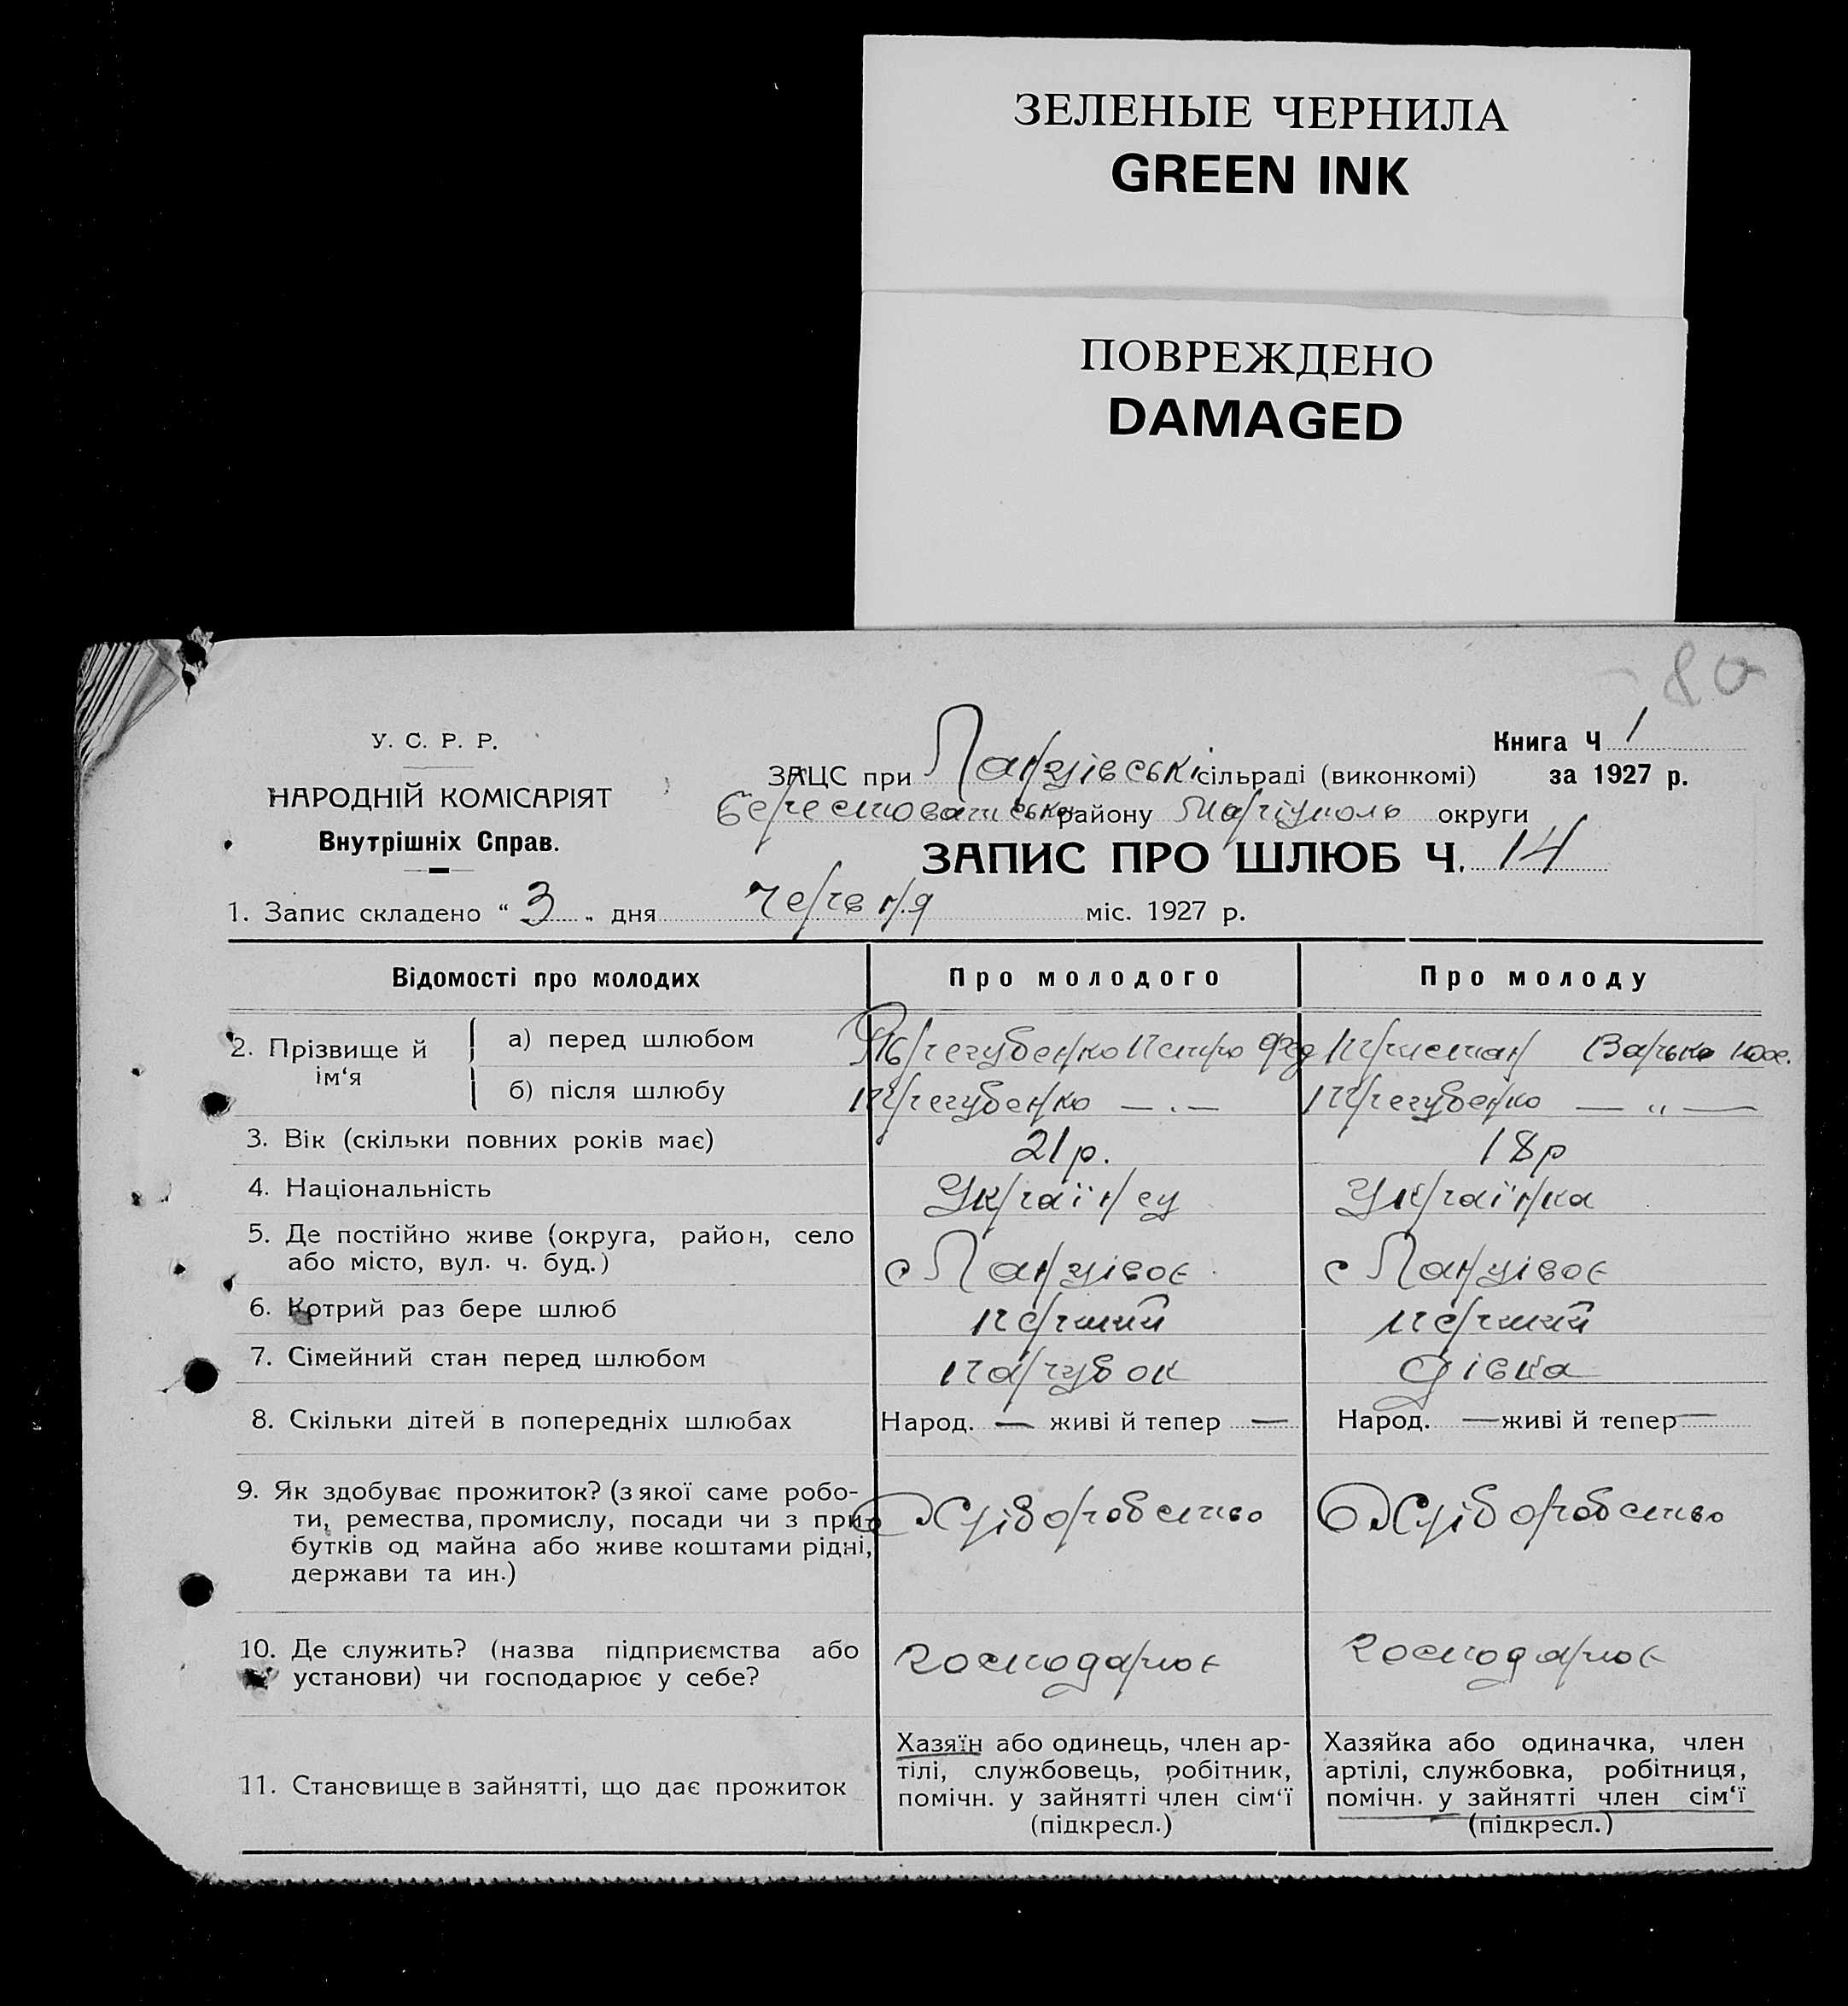 ЗЕЛЕНЫЕ ЧЕРНИЛА
GREEN INK
ПОВРЕЖДЕНО
DAMAGED
80
У. С. Р. Р.
НАРОДНІЙ КОМІСАРІЯТ
Внутрішніх Справ.
Книга Ч 1
за 1927 р.
ЗАЦС при сільраді (виконкомі)
району Маріуполь округи
ЗАПИС ПРО ШЛЮБ Ч. 14
1. Запис складено “ 3 „ дня червня міс. 1927 р.
Відомості про молодих Про молодого Про молоду
2. Прізвище й ім‘я
а) перед шлюбом Петро
б) після шлюбу
3. Вік (скільки повних років має) 21 р. 18 р
4. Національність Українец Українка
5. Де постійно живе (округа, район, село або місто, вул. ч. буд.) с с
6. Котрий раз бере шлюб перший перший
7. Сімейний стан перед шлюбом парубок дівка
8. Скільки дітей в попередніх шлюбах Народ. — живі й тепер — Народ. — живі й тепер —
9. Як здобуває прожиток? (з якої саме робо-
ти, ремества, промислу, посади чи з при-
бутків од майна або живе коштами рідні,
держави та ин.)
Хліборобство Хліборобство
10. Де служить? (назва підприємства або
установи) чи господарює у себе?
господарює господарює
11. Становище в зайнятті, що дає прожиток
Хазяїн або одинець, член ар-
тілі, службовець, робітник,
помічн. у зайнятті член сім‘ї
(підкресл.)
Хазяйка або одиначка, член
артілі, службовка, робітниця,
помічн. у зайнятті член сім‘ї
(підкресл.)